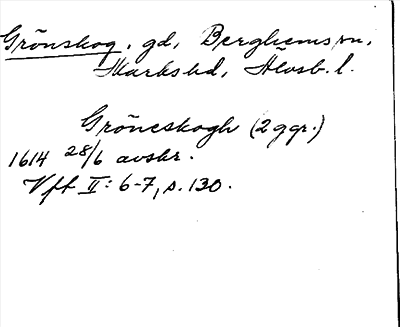 Grönskog, gd, Berghems sn,
Marks hd, Älvsb. l.
Gröneskogh (2 ggr.)
1614 28/6 avskr.
Vft II: 6-7, s. 130.